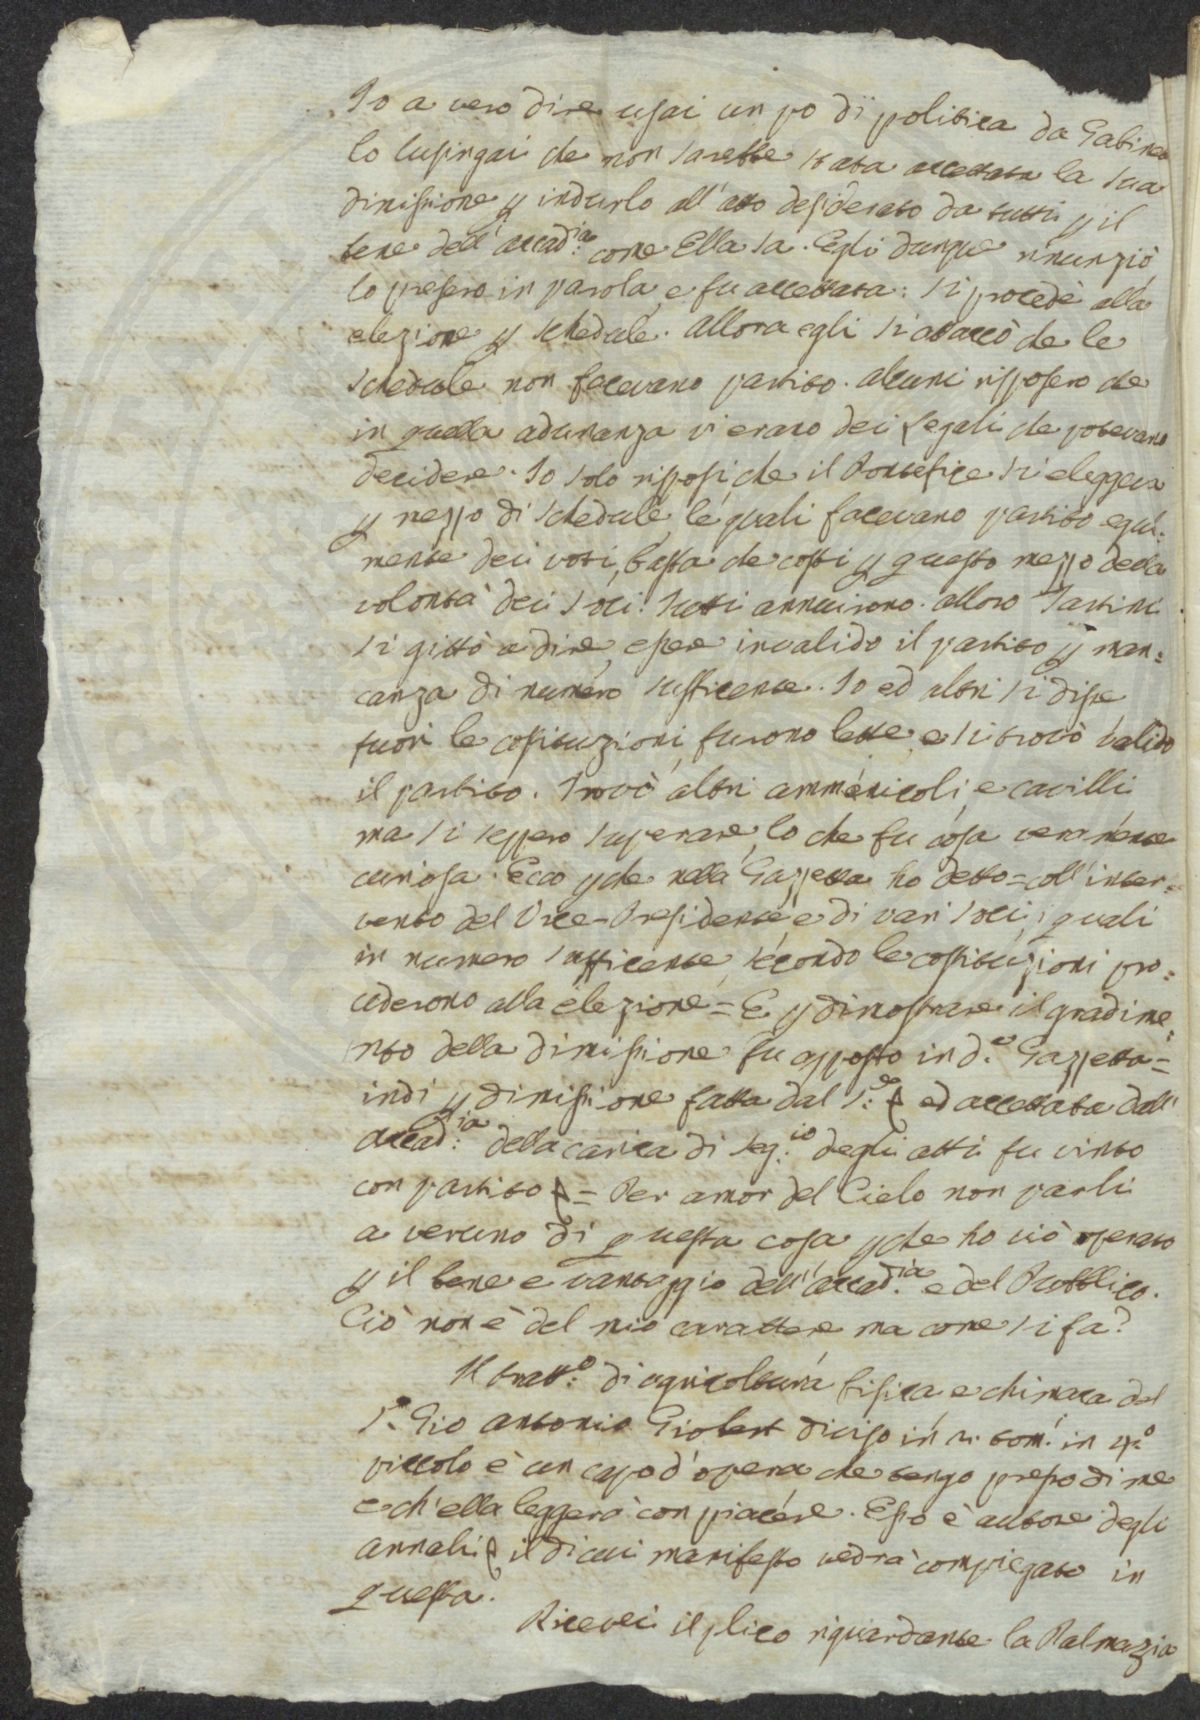 Io a vero dire usai un po di politica da Gabineto
lo lusingai che non sarebbe stata accettata la sua
dimissione p indurlo all'atto desiderato da tutti p il
bene dell'Accad:ia come Ella sa. Egli dunque rinunziò,
lo presero in parola, e fu accettata: si procedè alla
elezione p schedule. Allora egli si attaccò che le
schedule non facevano partito. Alcuni risposero che
in quella adunanza vi erano dei Legali che potevano
decidere. Io solo risposi, che il Pontefice si eleggeva
p mezzo di schedule, le quali facevano partito egual:
mente dei voti, basta che costi p questo mezzo della
volontà dei Soci. Tutti annuirono. Allora Sartini
si gittò a dire, essere invalido il partito p man:
canza di numero sufficente. Io ed altri si disse
fuori le costituzioni, furono lette, e si trovò valido
il partito. Trovò altri ammenicoli, e cavilli
ma si seppero superare, lo che fu cosa veramente
curiosa. Ecco pche nella Gazzetta ho detto = coll'inter:
vento del Vice-Presidente e di vari Soci, i quali
in numero sufficente, secondo le costituzioni pro:
cederono alla elezione = E p dimostrare il gradime:
nto della dimissione fu apposto in d.a Gazzetta =
indi p dimissione fatta dal S:e ed accettata dall'
Accad:ia della carica di Seg:io degli atti fu vinto
con partito = Per amor del Cielo non parli
a veruno di questa cosa pche ho ciò operato
p il bene e vantaggio dell'Accad:ia e del Pubblico.
Ciò non è del mio carattere ma come si fa?
Il tratt:o di agricoltura fisica e chimica del
S.r Gio Antonio Giobert diviso in tom: in 4.o
piccolo è un capo d'opera che tengo presso di me
e ch'ella leggerà con piacere. Esso è autore degli
annali il di cui manifesto vedrà compiegato in
questa.
Ricevei il plico riguardante la Dalmazia